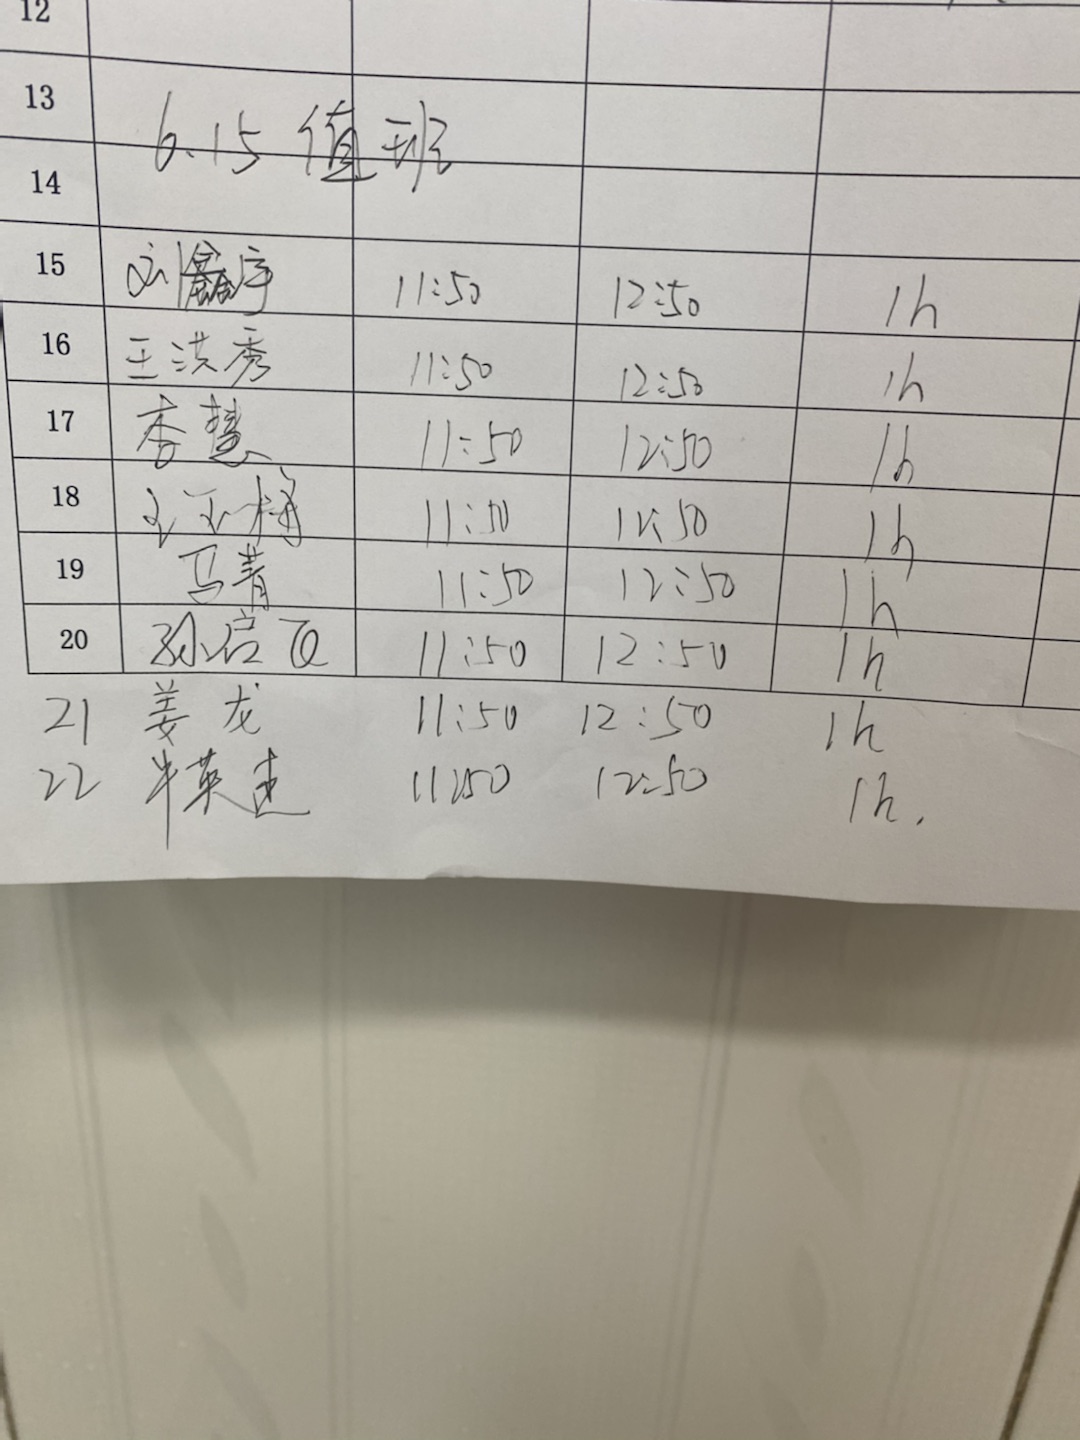 12
13
6.15 值班
14
15 刘鑫宇 11:50 12:50 1h
16 王洪秀 11:50 12:50 1h
17 李慧 11:50 12:50 1h
18 王玉梅 11:50 12:50 1h
19 马菁 11:50 12:50 1h
20 孙启 11:50 12:50 1h
21 姜龙 11:50 12:50 1h
22 牛英建 11:50 12:50 1h.